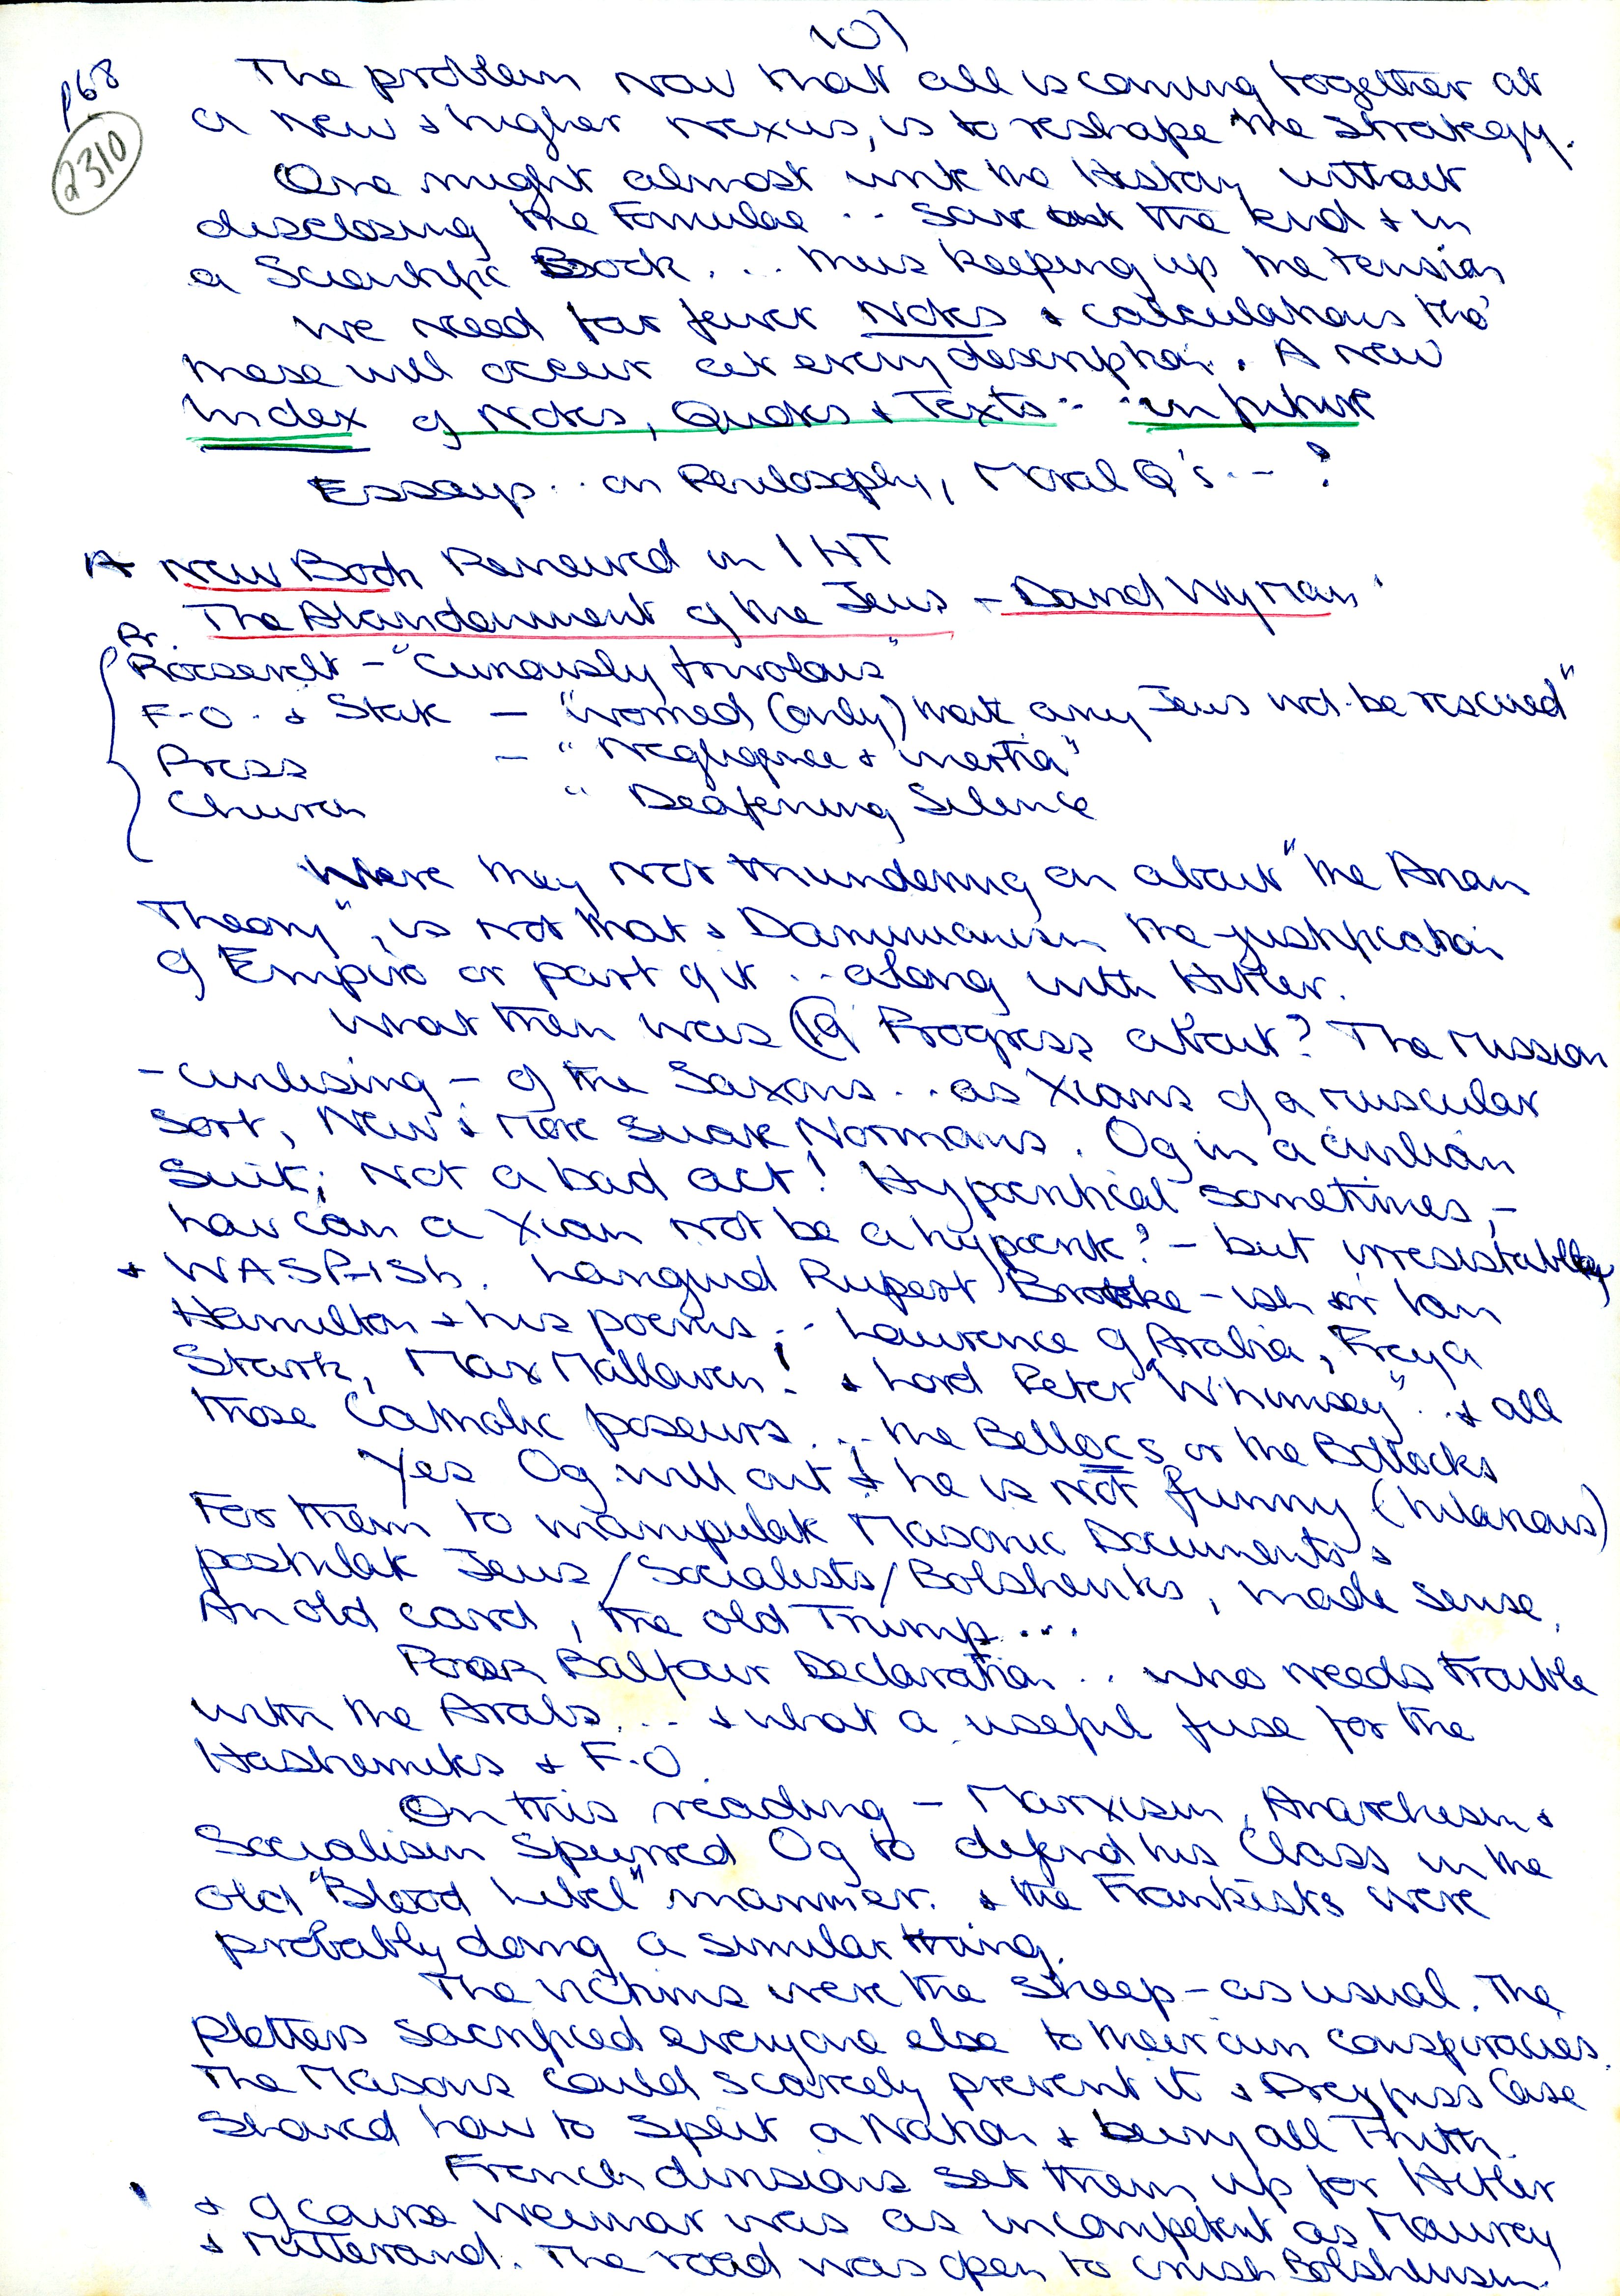 101
p68
2310
The problem now that all is coming together at
a new & higher nexus, is to reshape the strategy.
One might almost write the History without
disclosing the Formulae .. save at the end & in
a Scientific Book ... thus keeping up the tension
We need far fewer Notes & calculations tho'
these will occur at every description. A new
Index of Notes, Quotes & Texts .. in future
Essays .. on Philosophy, Moral Q's .. - ?
A New Book Reviewed in IHT
The Abandonment of the Jews - David Wyman
Pr.
Roosevelt - "Curiously frivolous"
F.O. & State - "worried (only) that any Jews wd. be rescued"
Press - "Negligence & inertia"
Church " Deafening Silence
Were they not thundering on about "the Arian
Theory", is not that & Darwinianism the justification
of Empire or part of it .. along with Hitler.
What then was 19 Progress about? The mission
- civilising - of the Saxons .. as Xians of a muscular
sort, New & More suave Normans. Og in a civilian
suit; not a bad act! Hypocritical sometimes, -
how can a Xian not be a hypocrite? - but irresistably
& WASP-ish. Languid Rupert Brooke-ish or Ian
Hamilton & his poems .. Lawrence of Arabia, Freya
Stark, Max Mallowan! & Lord Peter "Whimsey" .. & all
those Catholic poseurs ... the Bellocs or the Bollocks
Yes Og will out & he is not funny (hilarious)
For them to manipulate Masonic Documents &
postulate Jews/Socialists/Bolsheviks, made sense.
An old card, the old Trump ...
Poor Balfour Declaration .. who needs trouble
with the Arabs ... & what a useful fuse for the
Hashemites & F.O.
On this reading - Marxism, Anarchism &
Socialism spurred Og to defend his Class in the
old "Blood Libel" manner. & the Frankists were
probably doing a similar thing.
The victims were the sheep - as usual. The
plotters sacrificed everyone else to their own conspiracies.
The Masons could scarcely prevent it & Dreyfuss Case
showed how to split a Nation & bury all Truth.
French divisions set them up for Hitler
& of course Weimar was as incompetent as Maurey
& Mitterand. The road was open to crush Bolshevism.